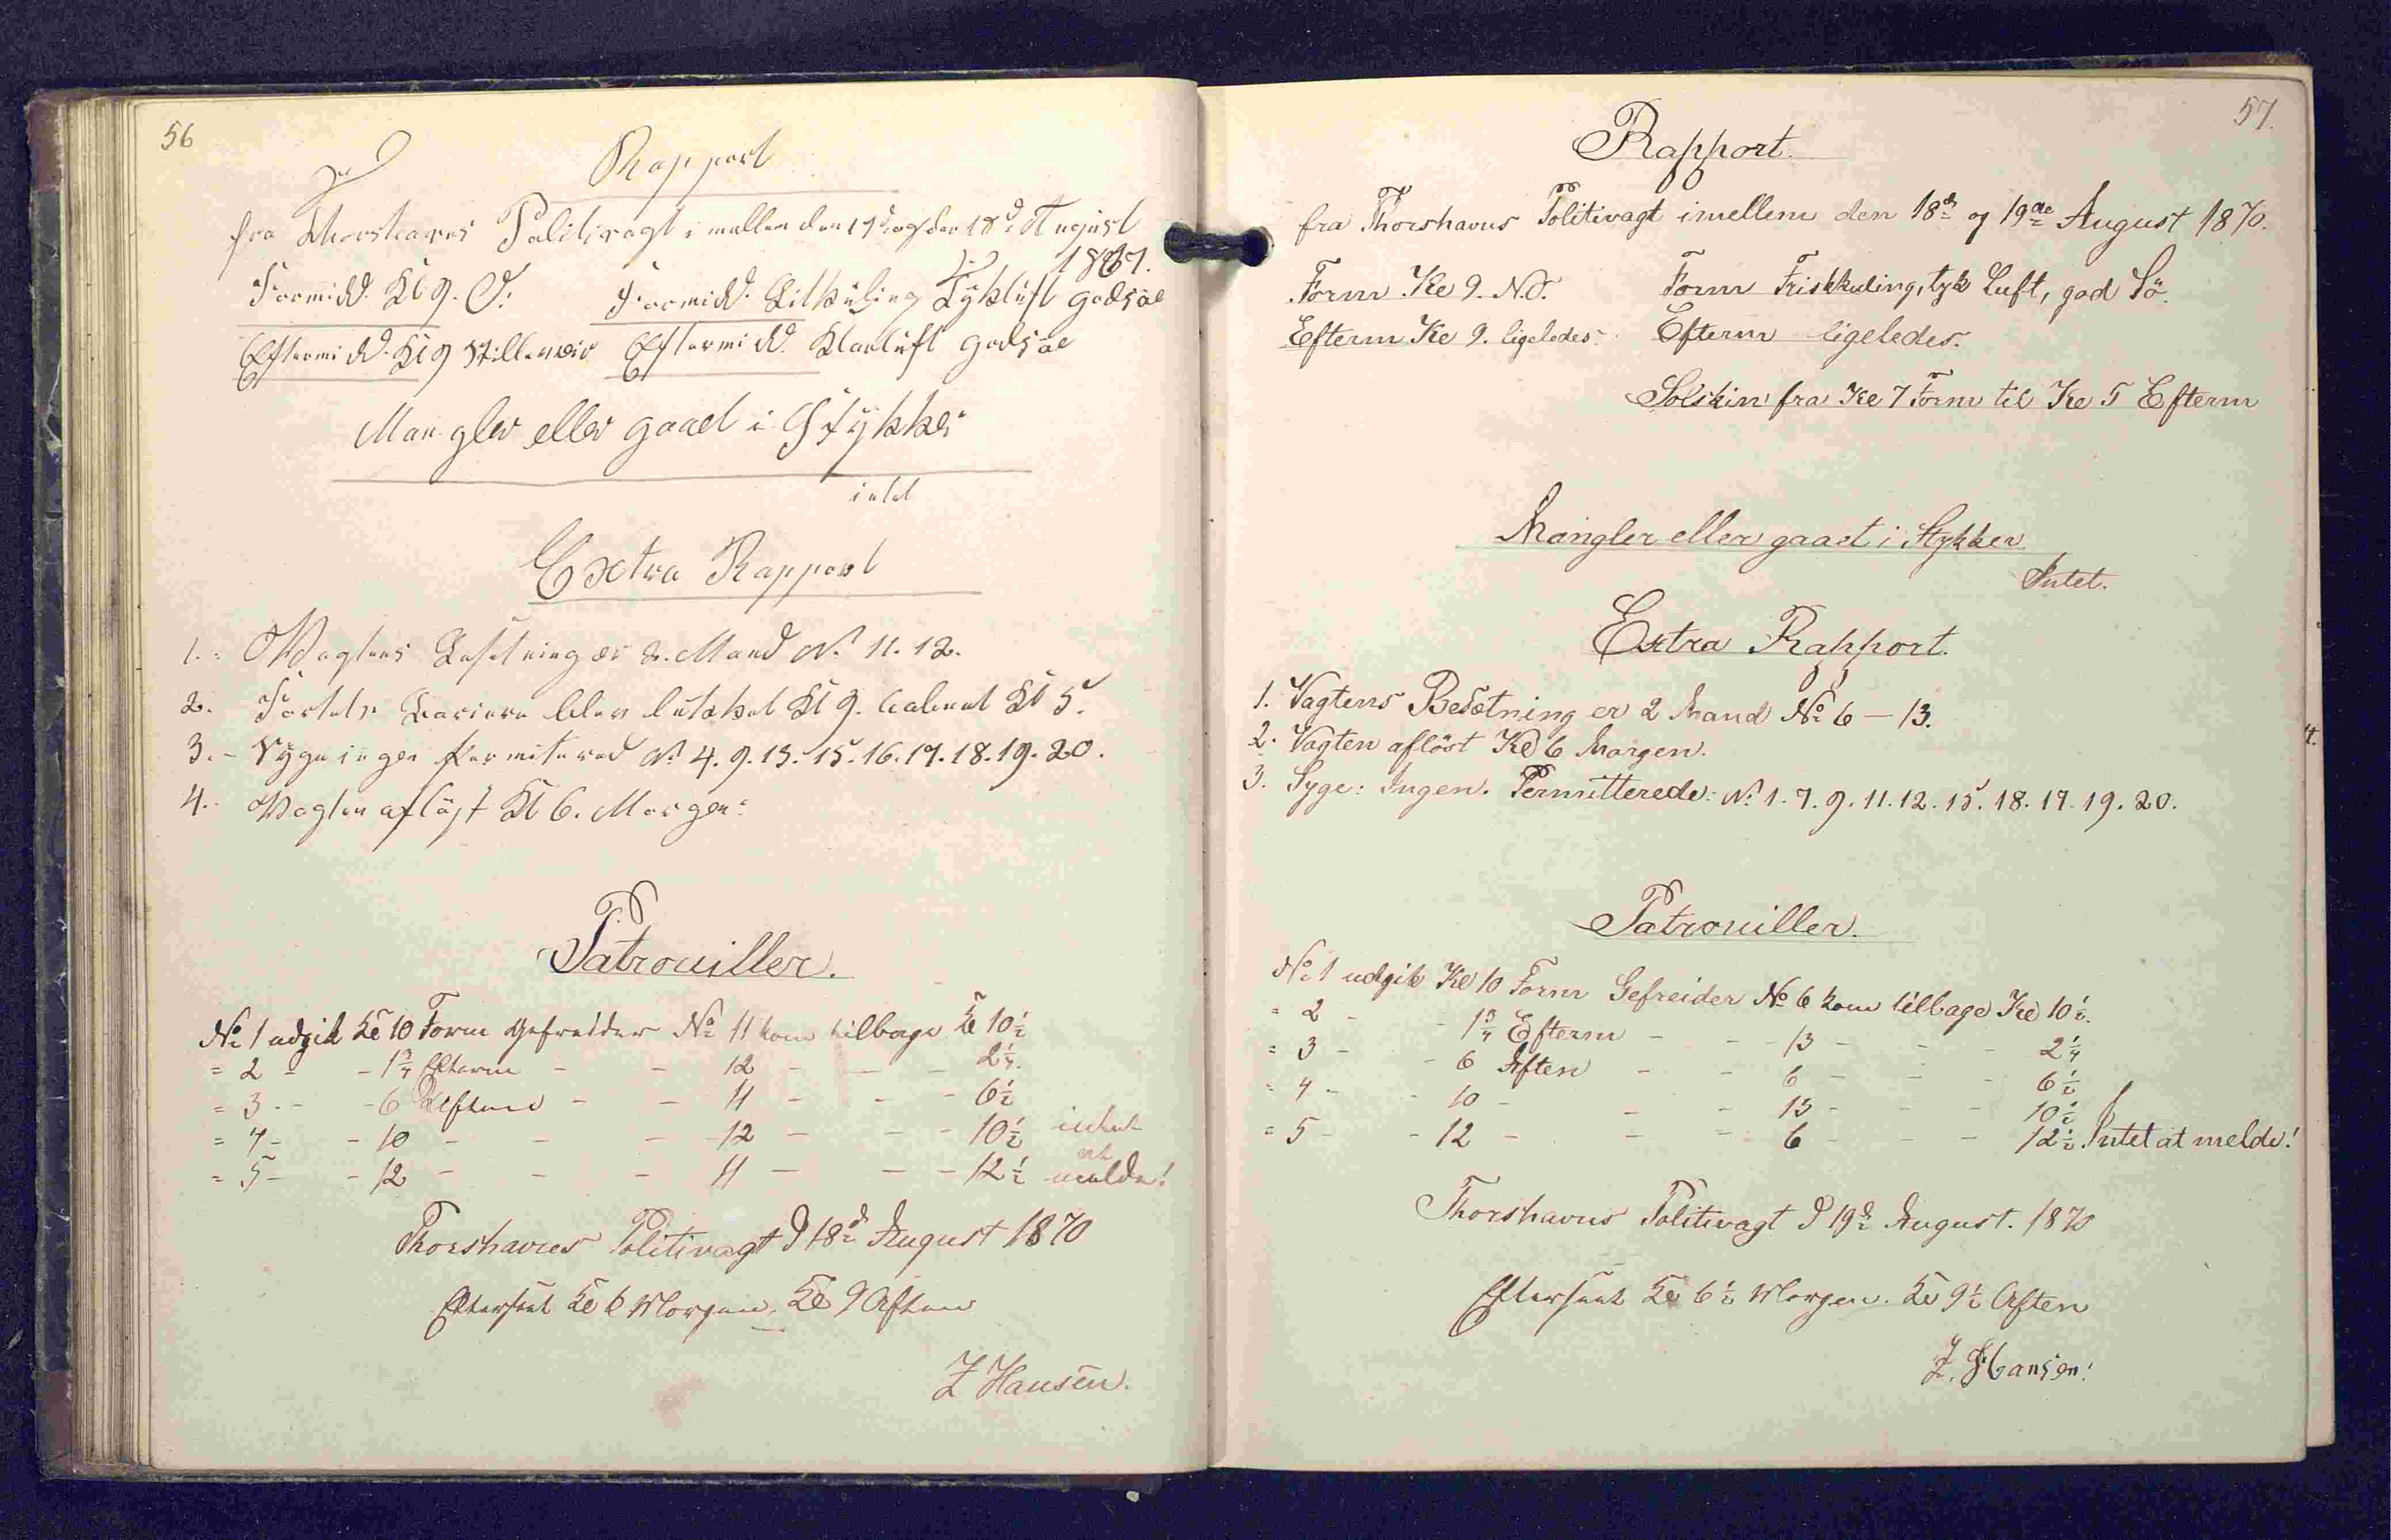 56
Rapport
fra Thorshavns Politivagt i mellem den 17d og den 18d August
1867.
Formidd. Kl 9. O. Formidd. Litkuling Tykluft godsöe
Eftermidd. Kl 9 Stilleveir Eftermidd. Klarluft godsöe
Mangler eller gaaet i Stykker
intet
Extra Rapport
1. Vagtens Besetning er 2. Mand No 11. 12.
2. Fortets Bariere blev lukket Kl 9. aabnet Kl 5.
3. - Syge ingen Permitered No 4. 9. 13. 15. 16. 17. 18. 19. 20.
4. Vagten aflöst Kl 6. Morgen
Patrouiller.
No 1 udgik Kl 10 Form Gefreider No 11 kom tilbage Kl 10½
= 2 - - 1¾ Efterm - - 12 - - - 2¼.
= 3 - - 6 Aften - - 11 - - - 6½
= 4 - - 10 - - - 12 - - - 10½ intet
= 5 - - 12 - - - 11 - - - 12½ at melde!
Thorshavns Politivagt d 18d August 1870
Efterseet Kl 6 Morgen. Kl 9 Aften
Z Hansen.
57.
Rapport.
fra Thorshavns Politivagt imellem den 18d og 19de August 1870.
Form Kl 9. N.O. Form Friskkuling, tyk Luft, god Sö.
Efterm Kl 9. ligeledes. Efterm ligeledes.
Solskin fra Kl 7 Form til Kl 5 Efterm
Mangler eller gaaet i Stykker
Intet.
Extra Rapport.
1. Vagtens Besætning er 2 Mand No 6 - 13.
2. Vagten aflöst Kl 6 Morgen.
3. Syge: Ingen. Permitterede: No 1. 7. 9. 11. 12. 15. 18. 17. 19. 20.
Patrouiller.
No 1 udgik Kl 10 Form Gefreider No 6 kom tilbage Kl 10½.
= 2 - - 1¾ Efterm - - 13 - - - 2¼
= 3 - - 6 Aften - - 6 - - - 6½
= 4 - - 10 - - - 13 - - - 10½
= 5 - - 12 - - - 6 - - - 12½ Intet at melde!
Thorshavns Politivagt d 19d August. 1870
Efterseet Kl 6½ Morgen. Kl 9½ Aften
Z. Hansen.